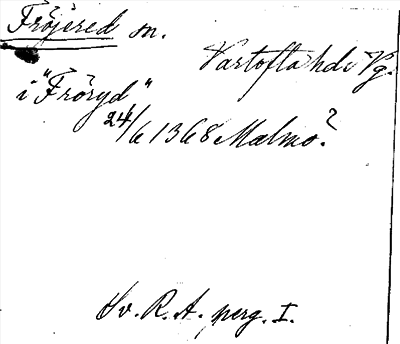 Fröjered sn.
Vartofta hd. Vg.
i "Fröryd"
24/6 1368 Malmö?
Sv. R. A. perg. I.